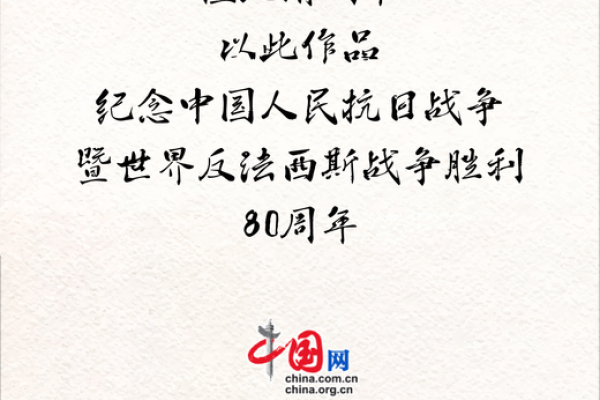 以此作品
纪念中国人民抗日战争
暨世界反法西斯战争胜利
80周年
中国网
china.com.cn
china.org.cn